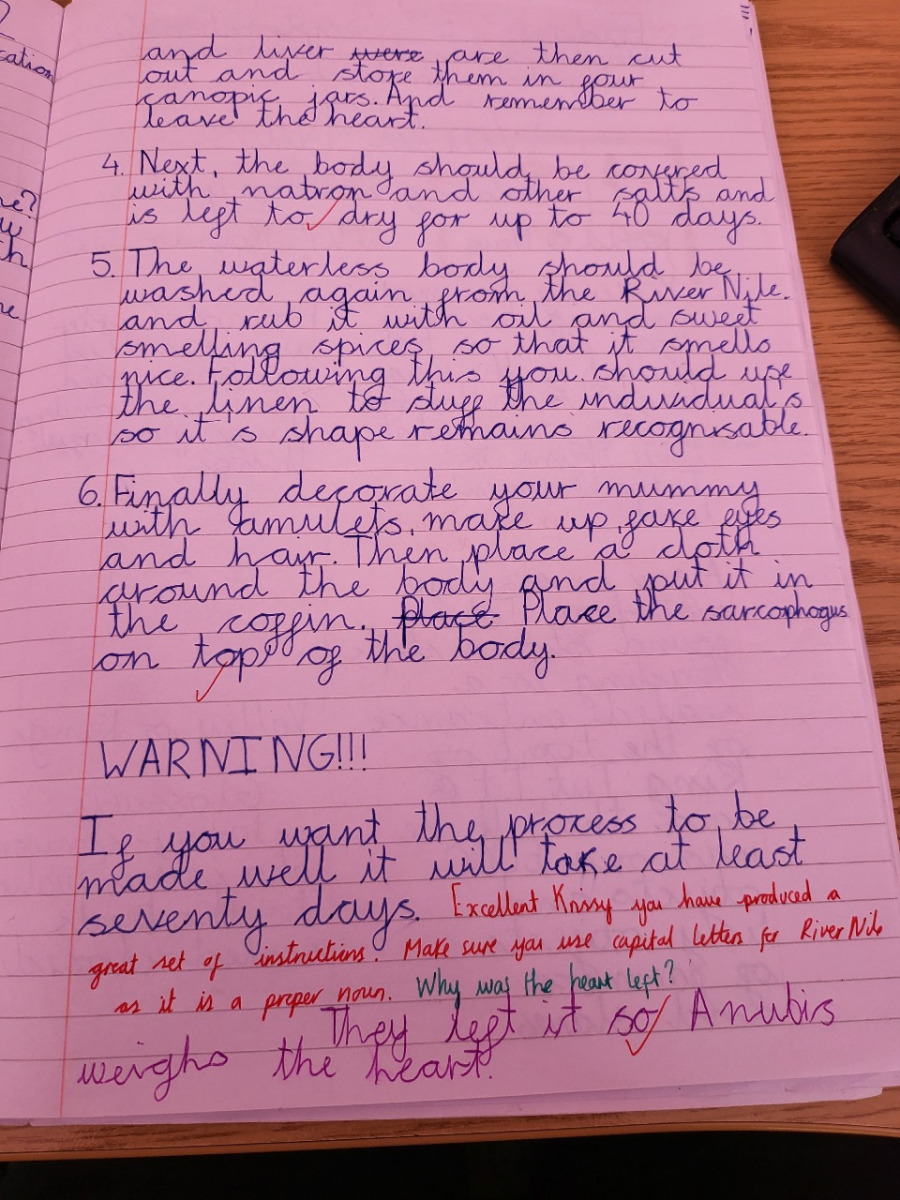 cation
and liver were are then cut
out and store them in four
canopic jars. And remember to
leave the heart.
4. Next, the body should be covered
with natron and other salts and
is left to dry for up to 40 days.
5. The waterless body should be
washed again from the River Nile.
and rub it with oil and sweet
smelling spices so that it smells
nice. Following this you should use
the linen to stuff the individual s
so it s shape remains recognisable.
6. Finally decorate your mummy
with amulets, make up, fake eyes
and hair. Then place a cloth
around the body and put it in
the coffin. Place Place the sarcophogus
on top of the body.
WARNING!!!
If you want the process to be
made well it will take at least
seventy days. Excellent Krissy you have produced a
great set of instructions. Make sure you use capital letters for River Nile
as it is a proper noun. Why was the heart left?
They left it so Anubis
weighs the heart.